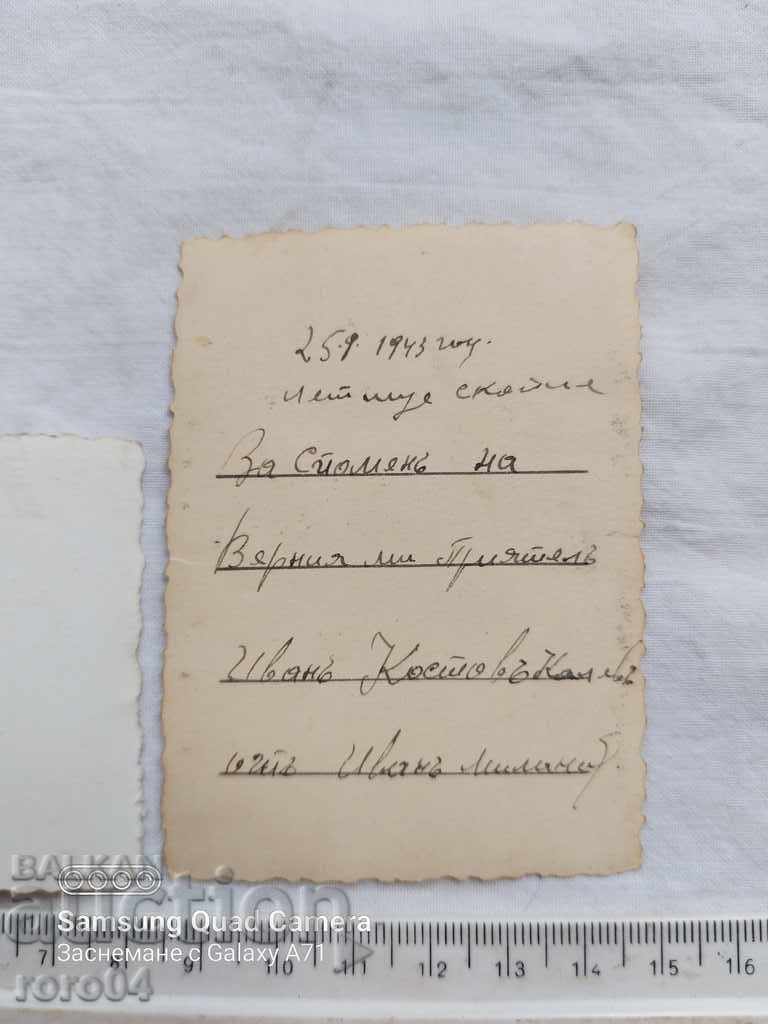 25.9. 1943 год.
летище скопие
За Спомень на
Верния ми Приятель
Иванъ Костовъ
отъ Иванъ Миланов.
BALKAN
auction
Samsung Quad Camera
Заснемане с Galaxy A71
7 8 9 10 11 12 13 14 15 16
roro04